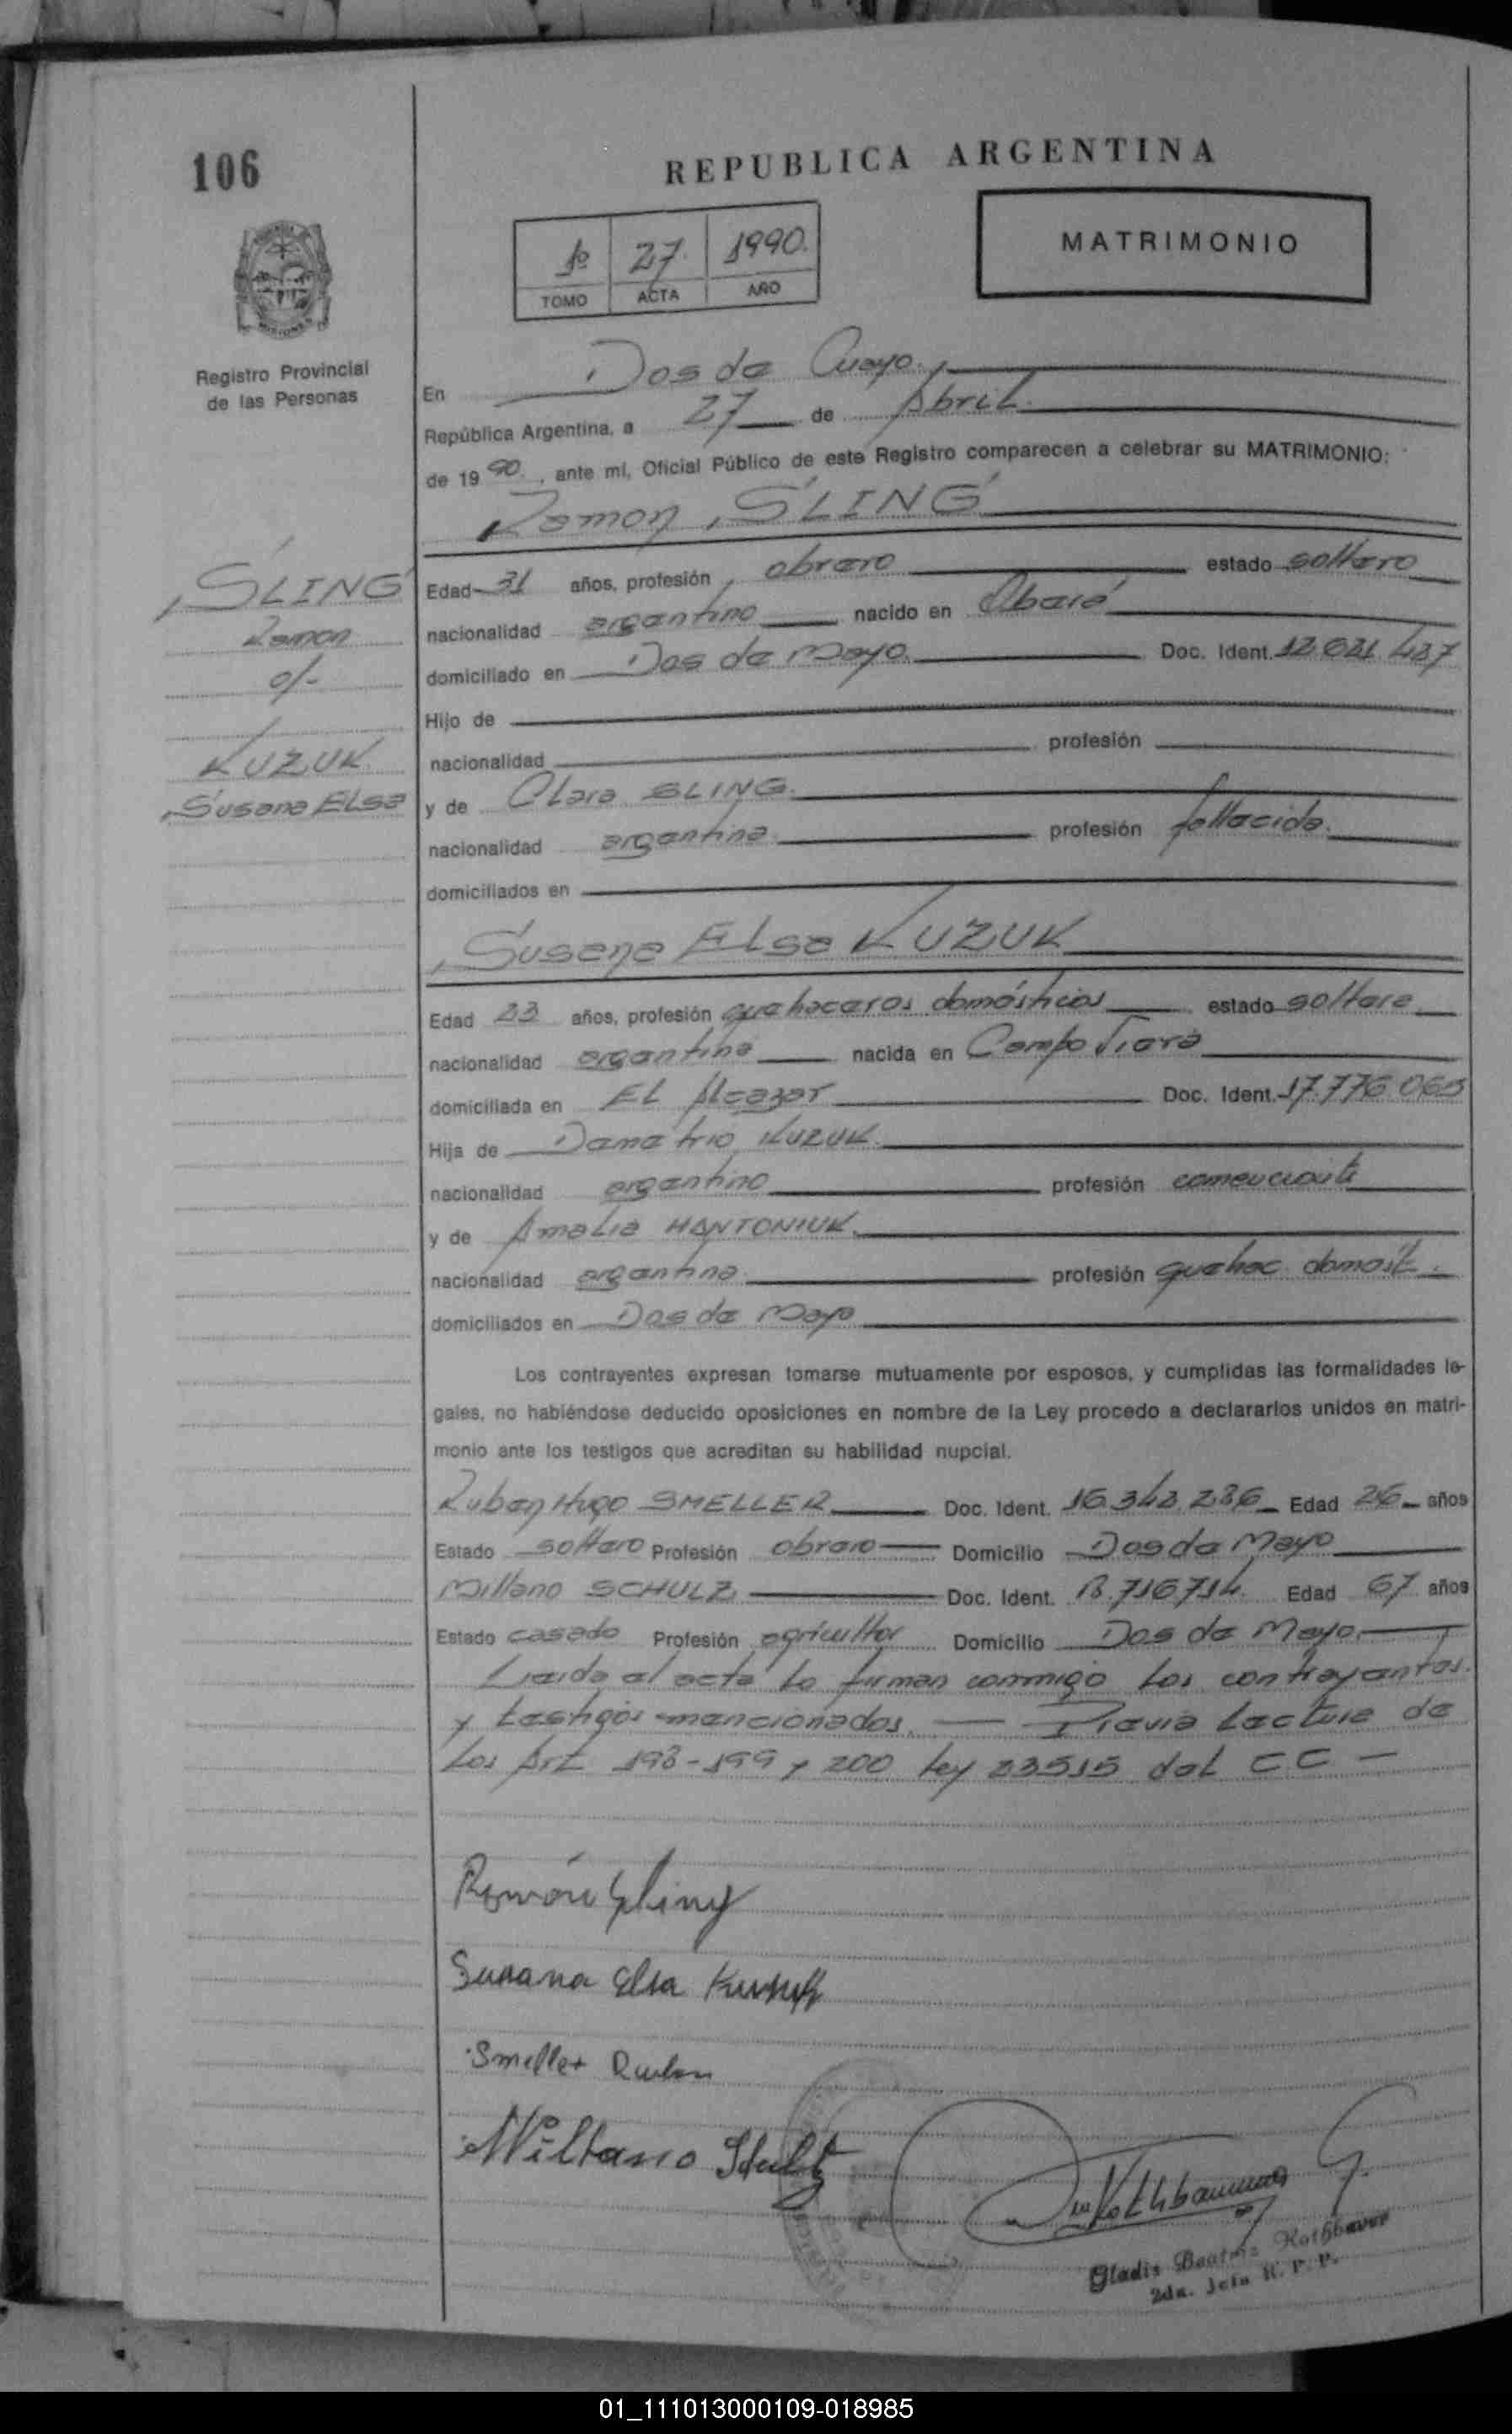 106
REPUBLICA ARGENTINA
1º 27. 1990.
TOMO ACTA AÑO
MATRIMONIO
Registro Provincial
de las Personas
En Dos de Mayo.
República Argentina, a 27 de Abril.
de 19 90., ante mí, Oficial Público de este Registro comparecen a celebrar su MATRIMONIO:
Ramon SLING
SLING
Ramon
c/-
KUZUK
Susana Elsa
Edad 31 años, profesión obrero estado soltero
nacionalidad argentino nacido en Oberá
domiciliado en Dos de Mayo. Doc. Ident. 12.621.437
Hijo de
nacionalidad profesión
y de Clara SLING.
nacionalidad argentina profesión fallecida.
domiciliados en
Susana Elsa KUZUK
Edad 23 años, profesión quehaceres domésticos estado soltera
nacionalidad argentina nacida en Campo Viera
domiciliada en El Alcazar Doc. Ident. 17.776.063
Hija de Demetrio KUZUK
nacionalidad argentino profesión comerciante
y de Amalia HANTONIUK.
nacionalidad argentina. profesión quehac. domést.
domiciliados en Dos de Mayo
Los contrayentes expresan tomarse mutuamente por esposos, y cumplidas las formalidades le-
gales, no habiéndose deducido oposiciones en nombre de la Ley procedo a declararlos unidos en matri-
monio ante los testigos que acreditan su habilidad nupcial.
Ruben Hugo SMELLER Doc. Ident. 16.342.286 Edad 26 años
Estado soltero Profesión obrero Domicilio Dos de Mayo
Miltano SCHULZ Doc. Ident. 13.716.714. Edad 67 años
Estado casado Profesión agricultor Domicilio Dos de Mayo.
Leida el acta la firman conmigo los contrayentes
y testigos mencionados. — Previa lectura de
los Art 198-199 y 200 ley 23515 del CC —
Ramón Sling
Susana Elsa Kuzuk
Smeller Ruben
Miltano Schulz
Rothbauer G.
Gladis Beatriz Rothbauer
2da. Jefa R. P. P.
01_111013000109-018985